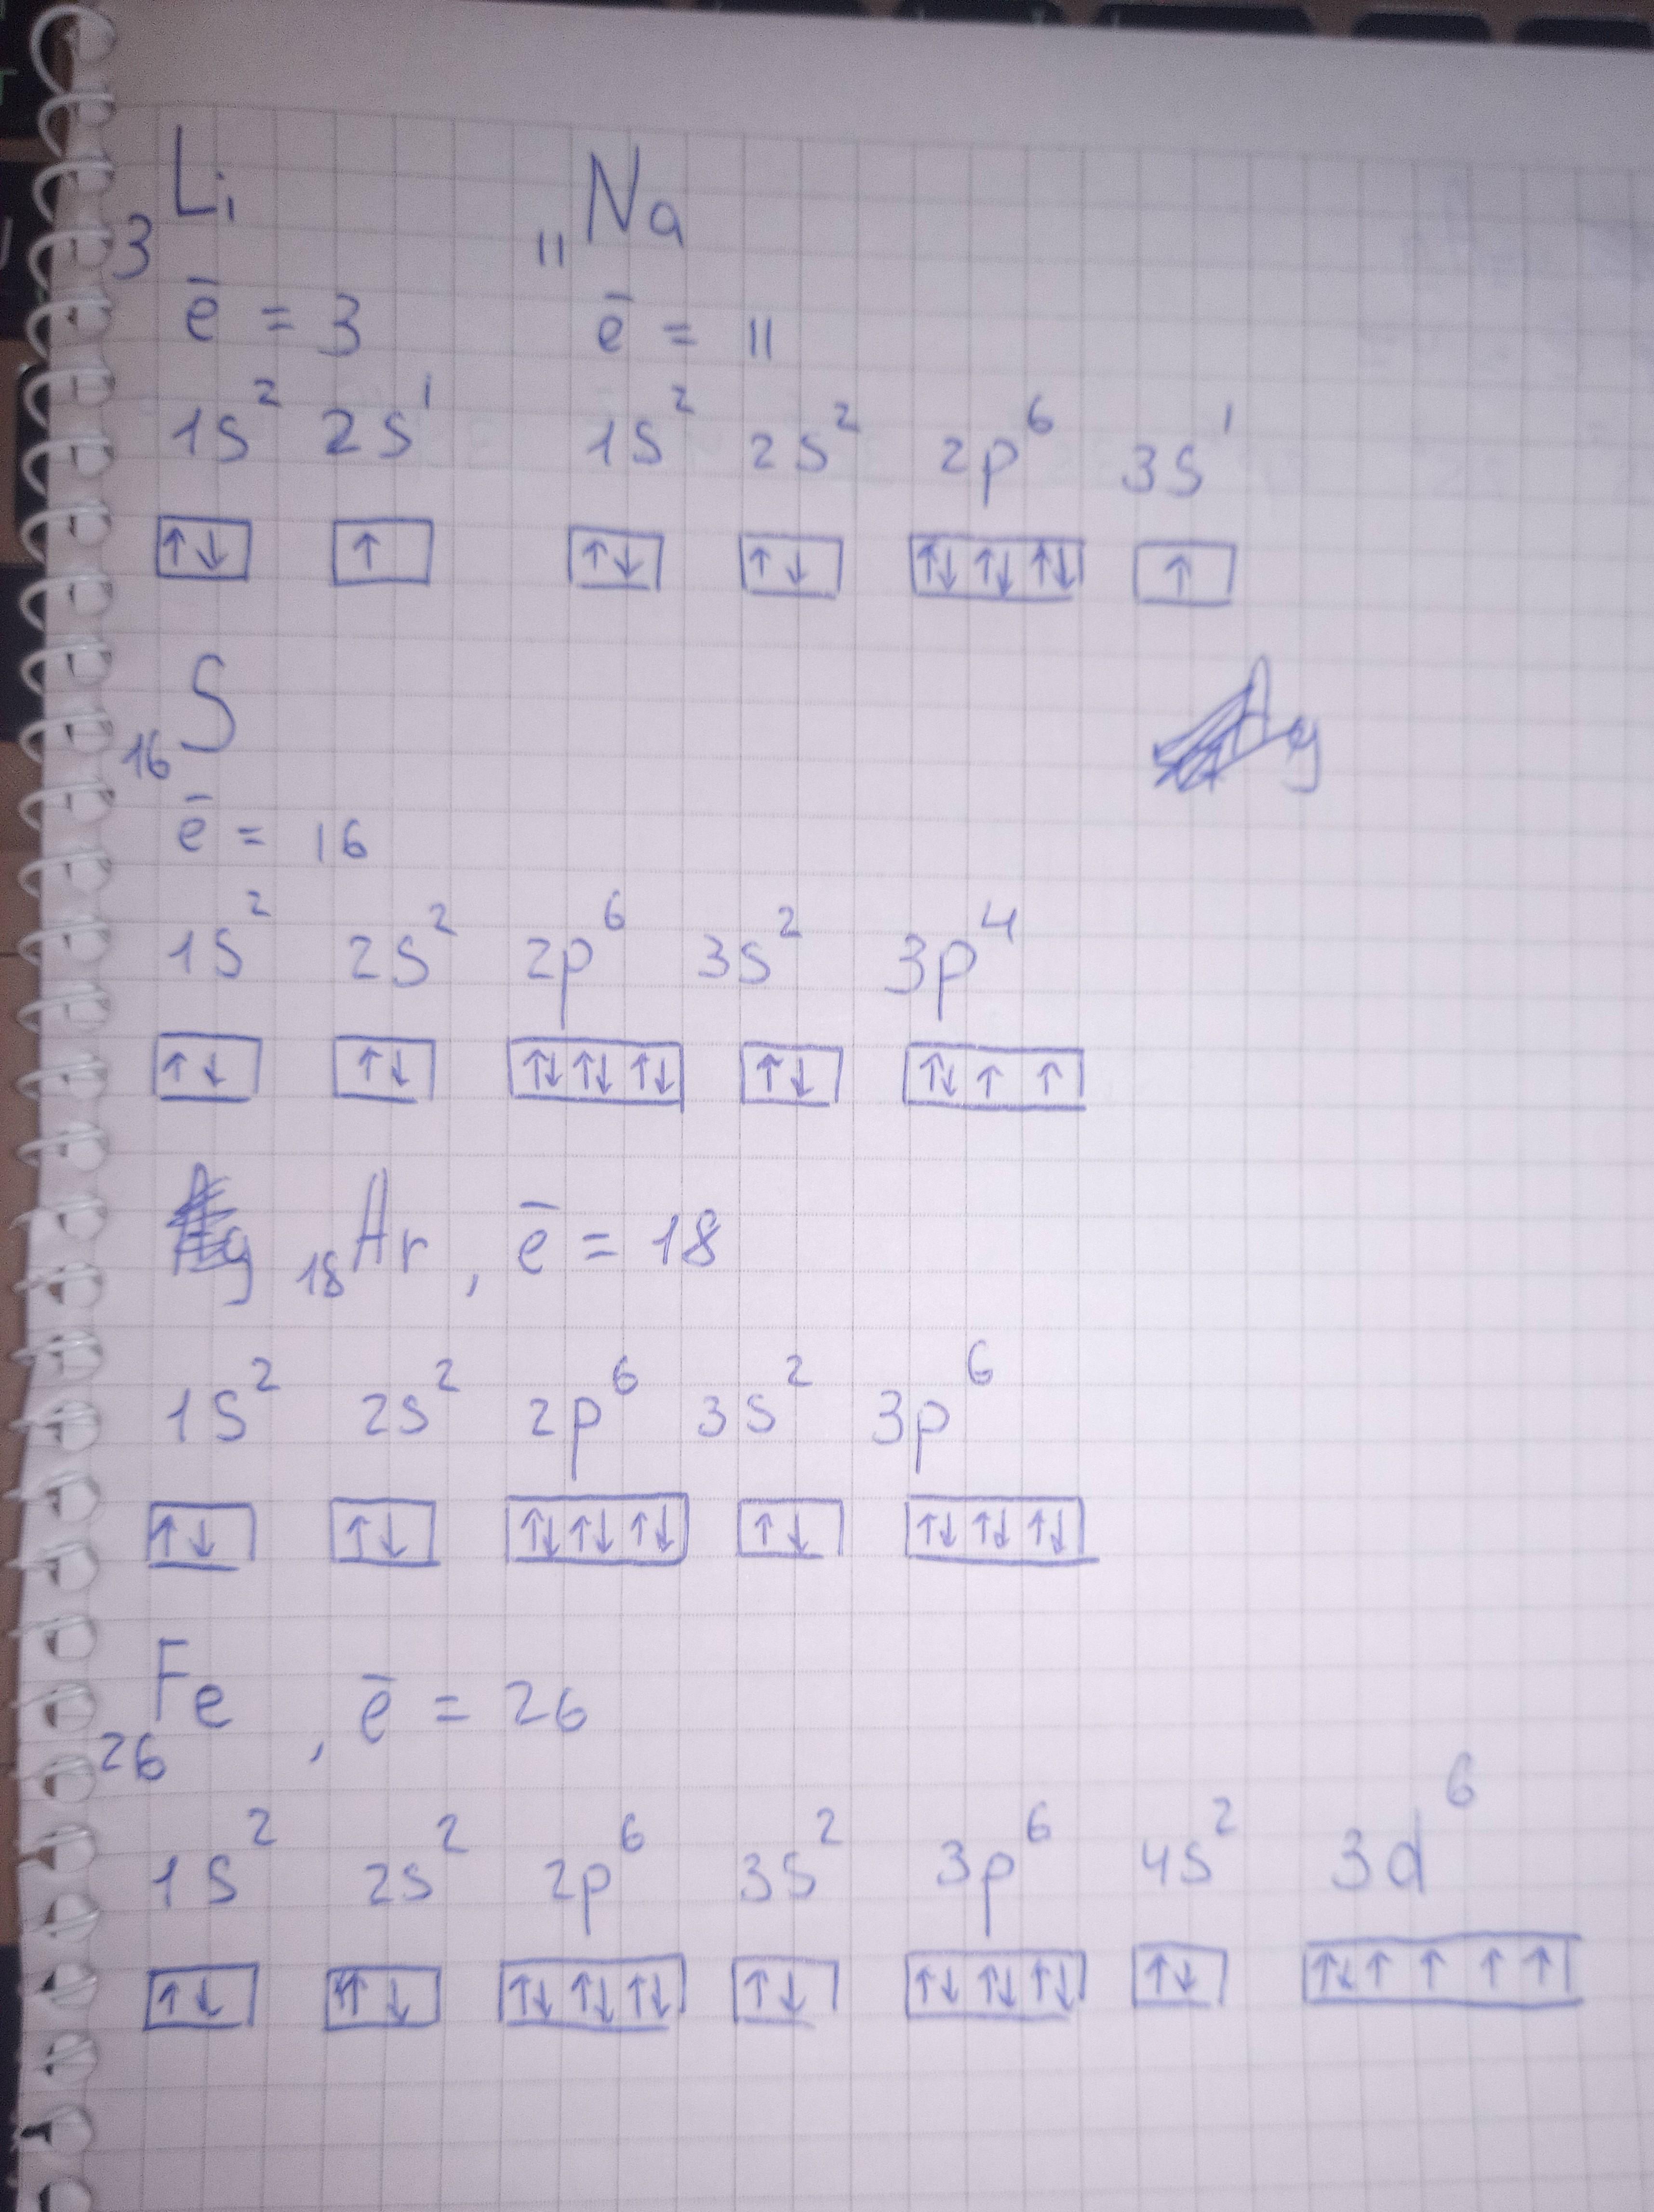 ₃Li ₁₁Na
ē = 3 ē = 11
1s² 2s¹ 1s² 2s² 2p⁶ 3s¹
↑↓ ↑ ↑↓ ↑↓ ↑↓ ↑↓ ↑↓ ↑
₁₆S
ē = 16
1s² 2s² 2p⁶ 3s² 3p⁴
↑↓ ↑↓ ↑↓ ↑↓ ↑↓ ↑↓ ↑↓ ↑ ↑
₁₈Ar, ē = 18
1s² 2s² 2p⁶ 3s² 3p⁶
↑↓ ↑↓ ↑↓ ↑↓ ↑↓ ↑↓ ↑↓ ↑↓ ↑↓
₂₆Fe, ē = 26
1s² 2s² 2p⁶ 3s² 3p⁶ 4s² 3d⁶
↑↓ ↑↓ ↑↓ ↑↓ ↑↓ ↑↓ ↑↓ ↑↓ ↑↓ ↑↓ ↑↓ ↑ ↑ ↑ ↑